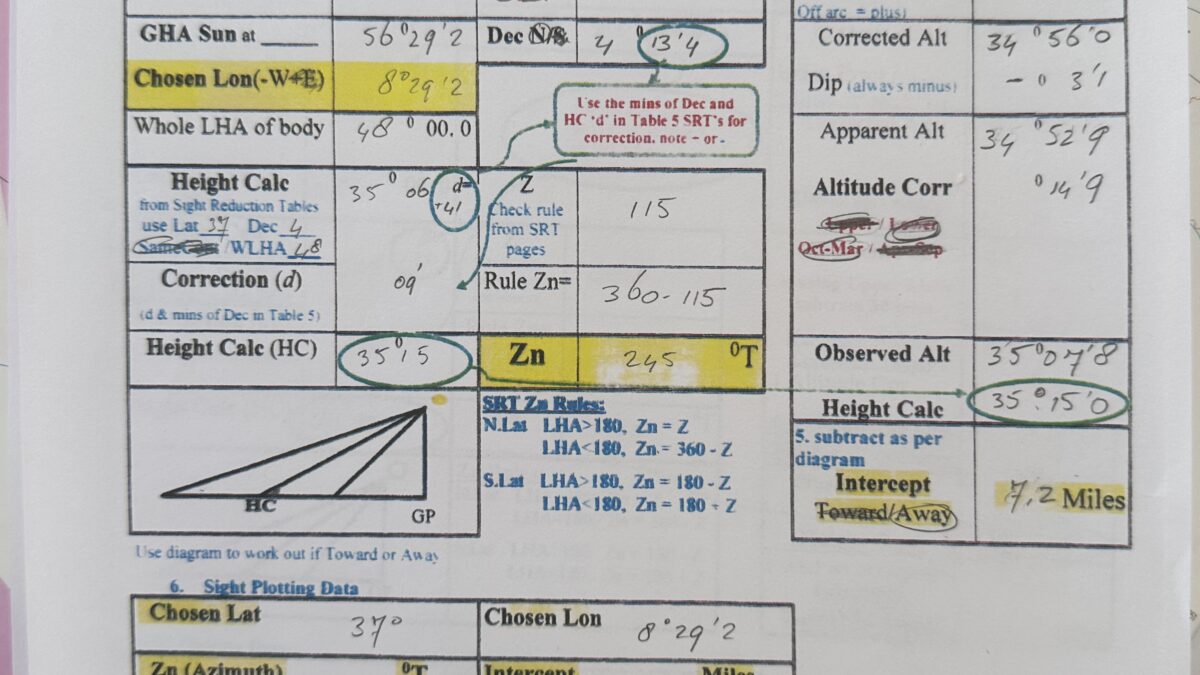 Off arc = plus)
GHA Sun at _____ 56°29'2 Dec N/S 4°13'4
Corrected Alt 34°56'0
Chosen Lon(-W+E) 8°29'2
Dip (always minus) -0 3'1
Use the mins of Dec and
HC 'd' in Table 5 SRT's for
correction. note - or -
Whole LHA of body 48°00.0
Apparent Alt 34°52'9
Height Calc 35°06 d=
+41
from Sight Reduction Tables
use Lat 37 Dec 4
Same /WLHA 48
Z
Check rule
from SRT
pages
115
Altitude Corr °14'9
Upper / Lower
Oct-Mar / Apr-Sep
Correction (d) 09'
(d & mins of Dec in Table 5)
Rule Zn= 360-115
Height Calc (HC) 35°15
Zn 245 °T
Observed Alt 35°07'8
Height Calc 35°15'0
SRT Zn Rules:
N.Lat LHA>180, Zn = Z
LHA<180, Zn = 360 - Z
S.Lat LHA>180, Zn = 180 - Z
LHA<180, Zn = 180 + Z
5. subtract as per
diagram
Intercept
Toward/Away
7.2 Miles
HC
GP
Use diagram to work out if Toward or Away
6. Sight Plotting Data
Chosen Lat 37° Chosen Lon 8°29'2
Zn (Azimuth) °T Intercept Miles